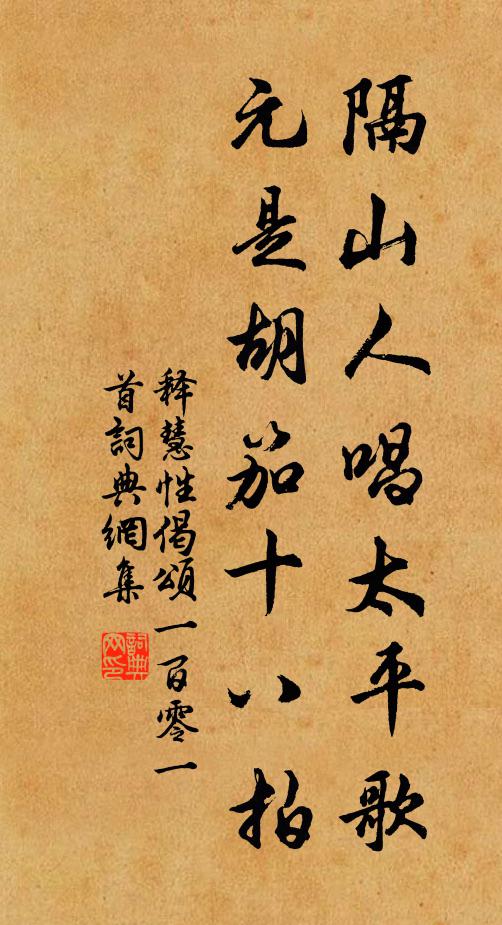 隔山人唱太平歌
元是胡笳十八拍
释慧性偈頌一百零一
首詞典網集
詞典
网印